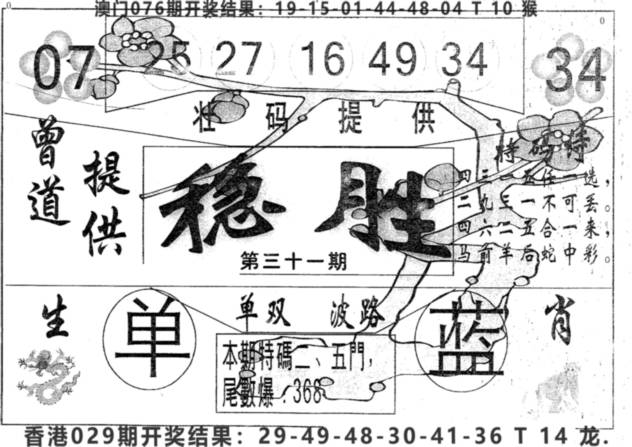 澳门076期开奖结果：19-15-01-44-48-04 T 10 猴
07 25 27 16 49 34 34
壮码提供
曾道
提供
稳胜
第三十一期
特码诗
四三一五任一选，
二九三一不可丢。
四六二五合一来，
马前羊后蛇中彩。
生 单 单双 波路 蓝 肖
本期特碼二、五門，
尾數爆：368
香港029期开奖结果：29-49-48-30-41-36 T 14 龙.